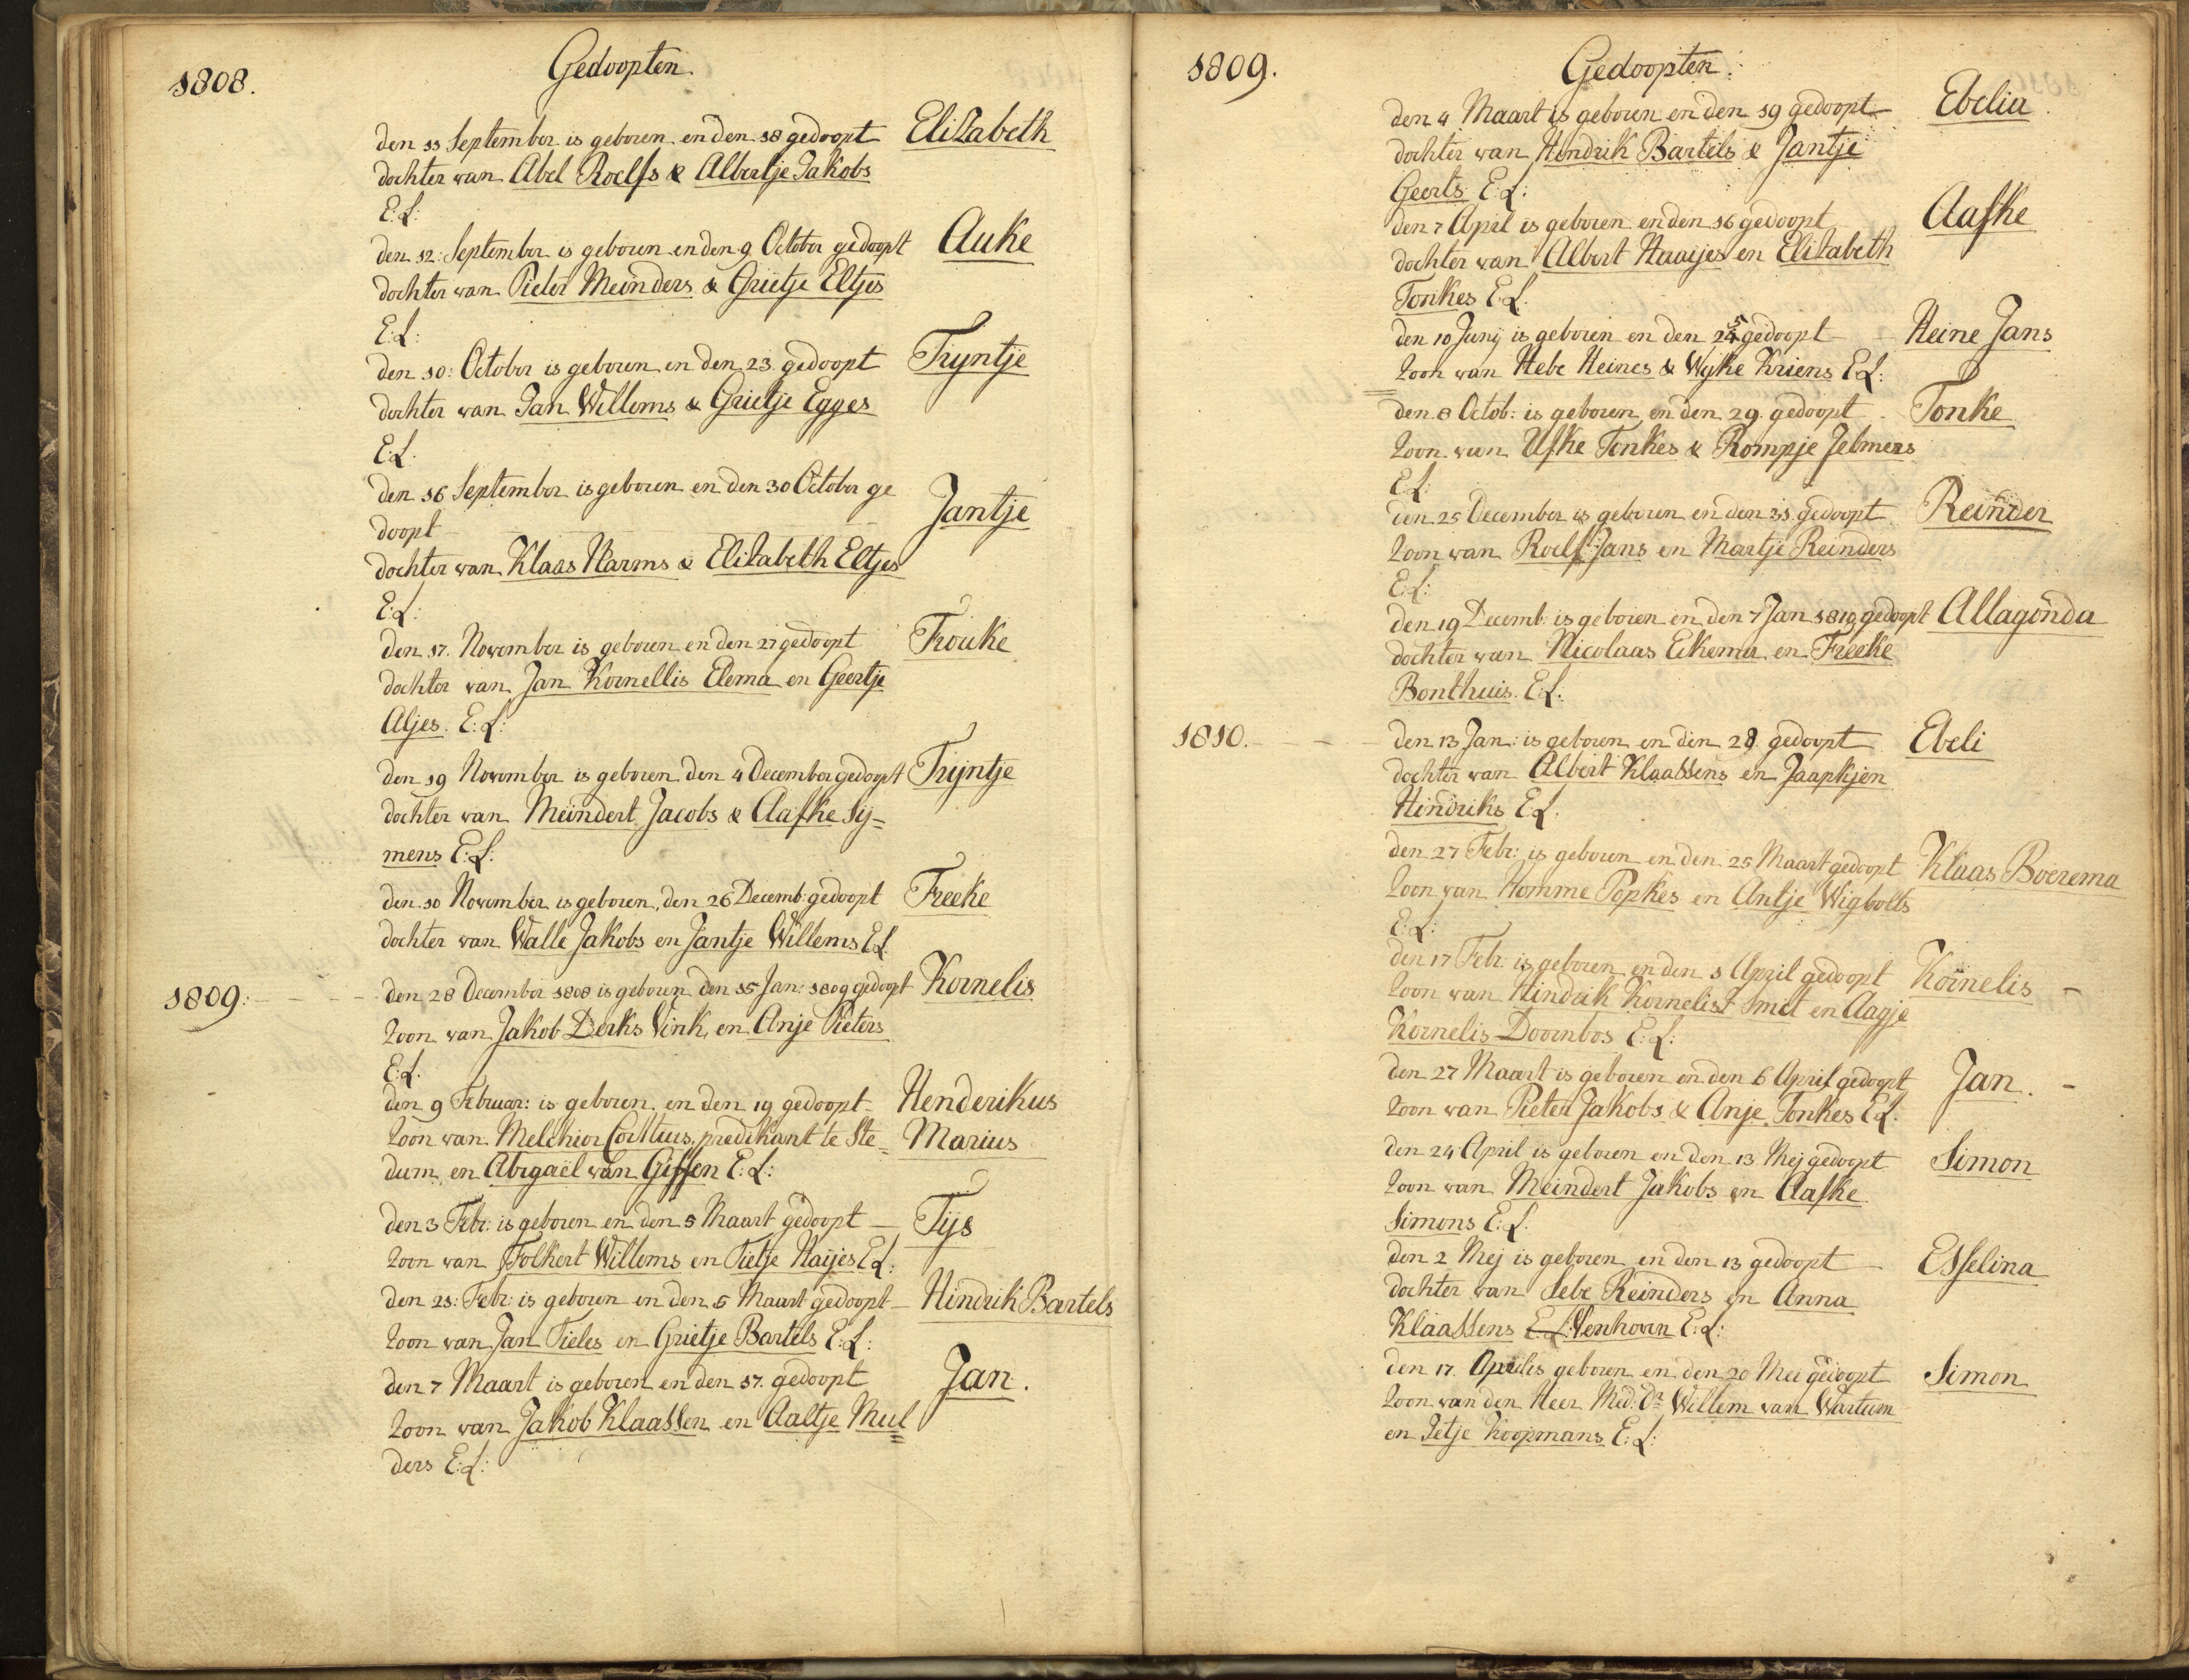 1808.
Gedoopten.
den 11 September is geboren en den 18 gedoopt Elizabeth
dochter van Abel Roelfs & Albertje Jakobs
E: L:
den 12: September is geboren en den 9 October gedoopt Auke
dochter van Pieter Meinders & Grietje Eltjes
E: L:
den 10: October is geboren en den 23. gedoopt Trijntje
dochter van Jan Willems & Grietje Egges
E: L.
den 16 September is geboren en den 30 October ge
doopt Jantje
dochter van Klaas Harms & Elizabeth Eltjes
E: L:
den 17. November is geboren en den 27 gedoopt Frouke
dochter van Jan Kornellis Elema en Geertje
Aljes. E: L:
den 19 November is geboren den 4 December gedoopt Trijntje
dochter van Meindert Jacobs & Aafke Sij=
mens E: L:
den 10 November is geboren, den 26 Decemb: gedoopt Freeke
dochter van Walle Jakobs en Jantje Willems E L.
1809: den 28 December 1808 is geboren den 15 Jan: 1809 gedoopt Kornelis
zoon van Jakob Derks Vink, en Anje Pieters
E: L.
den 9 Februar: is geboren en den 19 gedoopt Henderikus
zoon van Melchior Corttius, predikant te Ste= Marius
dum, en Abigaël van Giffen E: L:
den 3 Febr: is geboren en den 5 Maart gedoopt Tijs
zoon van Folkert Willems en Tietje Haijes E L:
den 21: Febr: is geboren en den 5 Maart gedoopt Hindrik Bartels
zoon van Jan Tieles en Grietje Bartels E: L:
den 7 Maart is geboren en den 17. gedoopt Jan.
zoon van Jakob Klaassen en Aaltje Mul=
ders E: L:
1809.
Gedoopten.
den 4 Maart is geboren en den 19 gedoopt Ebelia
dochter van Hindrik Bartels & Jantje
Geerts E: L:
den 7 April is geboren en den 16 gedoopt Aafke
dochter van Albert Haaijes en Elizabeth
Tonkes E: L.
den 10 Junij is geboren en den 25 gedoopt Heine Jans
zoon van Hebe Heines & Wijke Kriens E L:
den 8 Octob: is geboren en den 29. gedoopt Tonke
zoon van Ufke Tonkes & Rompje Jelmers
E L:
den 25 December is geboren en den 31. gedoopt Reinder
zoon van Roelf Jans en Martje Reinders
E: L:
den 19 Decemb: is geboren en den 7 Jan 1810 gedoopt Allagonda
dochter van Nicolaas Eekema en Freeke
Bonthuis. E: L:
1810. den 13 Jan: is geboren en den 28 gedoopt Ebeli
dochter van Albert Klaassens en Jaapkjen
Hindriks E L.
den 27 Febr: is geboren en den 25 Maart gedoopt Klaas Boerema
zoon van Homme Popkes en Antje Wigbolts
E: L:
den 17 Febr: is geboren en den 1 April gedoopt Kornelis
zoon van Hindrik Kornelis Smit en Aagje
Kornelis Doornbos E: L:
den 27 Maart is geboren en den 6 April gedoopt Jan.
zoon van Pieter Jakobs & Anje Tonkes E L:
den 24 April is geboren en den 13 Mej gedoopt Simon
zoon van Meindert Jakobs en Aafke
Simons E: L.
den 2 Mej is geboren en den 13 gedoopt Esselina
dochter van Sebe Reinders en Anna
Klaassens E: L: Venhoven E: L:
den 17. April is geboren en den 20 Mei gedoopt Simon
zoon van den Heer Med: Dr Willem van Wartum
en Jetje Koopmans E: L: